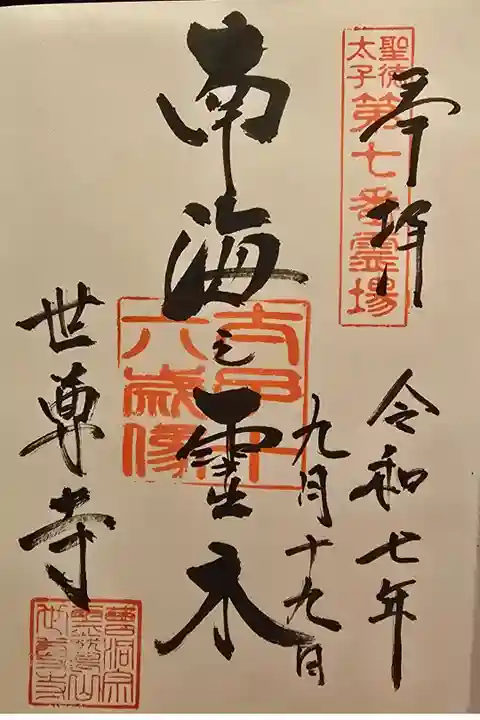 聖徳
太子
第七番霊場
奉拝
令和七年
九月十九日
太子十
六歳像
南海之霊木
世尊寺
曹洞宗
霊鷲山
世尊寺